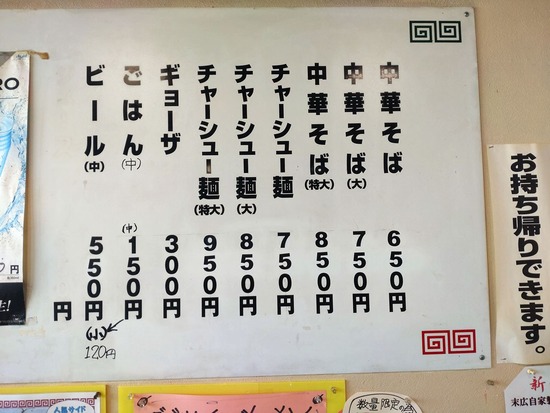 中華そば 650円
中華そば(大) 750円
中華そば(特大) 850円
チャーシュー麺 750円
チャーシュー麺(大) 850円
チャーシュー麺(特大) 950円
ギョーザ 300円
ごはん(中) (中)150円
(小)120円
ビール(中) 550円
円
お持ち帰りできます。
新
末広自家製
数量限定の
人気サイド
RO
円